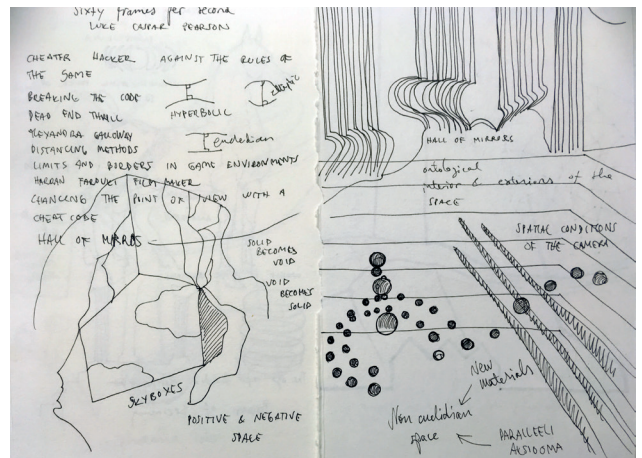 Sixty frames per second
LUKE CASPAR PEARSON
CHEATER HACKER AGAINST THE RULES OF
THE GAME
BREAKING THE CODE
DEAD END THRILL
HYPERBOLIC
elliptic
ALEXANDRA GALLOWAY
euclidian
DISTANCING METHODS
LIMITS AND BORDERS IN GAME ENVIRONMENTS
HARRAN FAROUKI FILM MAKER
CHANGING THE POINT OF VIEW WITH A
CHEAT CODE
HALL OF MIRROS
SOLID
BECOMES
VOID
VOID
BECOMES
SOLID
SKYBOXES
POSITIVE & NEGATIVE
SPACE
HALL OF MIRRORS
ontological
interior & exteriors of the
SPACE
SPATIAL CONDITIONS
OF THE CAMERA
New
materials
Non euclidian
space
PARALLELI